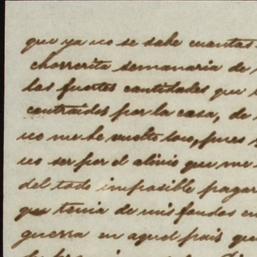 que ya no se sabe cuantas
chorrerita semanaria de
las fuertes cantidades que
contraidas por la casa, de
no me he vuelto loco, pues
no ser por el alivio que me
del todo imposible pagar
que tenia de mis fondos en
guerra en aquel pais que